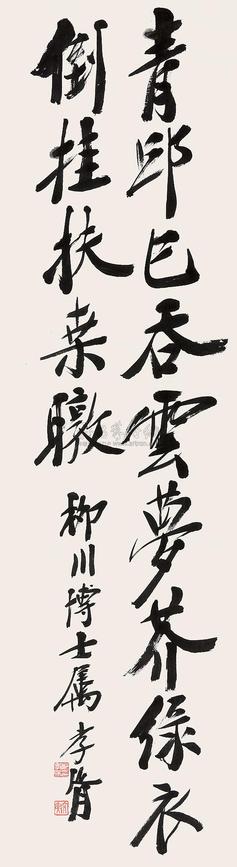 青邱已吞雲夢芥緑衣
倒挂扶桒暾
柳川博士属 孝胥